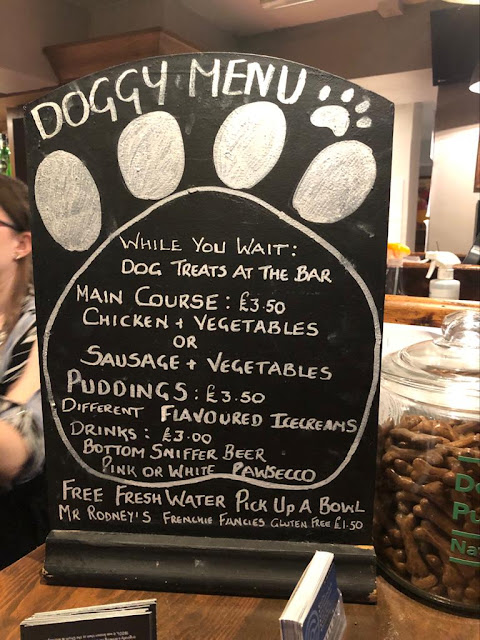 DOGGY MENU
WHILE YOU WAIT:
DOG TREATS AT THE BAR
MAIN COURSE: £3.50
CHICKEN + VEGETABLES
OR
SAUSAGE + VEGETABLES
PUDDINGS: £3.50
DIFFERENT FLAVOURED ICECREAMS
DRINKS: £3.00
BOTTOM SNIFFER BEER
PINK OR WHITE PAWSECCO
FREE FRESH WATER PICK UP A BOWL
MR RODNEY'S FRENCHIE FANCIES GLUTEN FREE £1.50